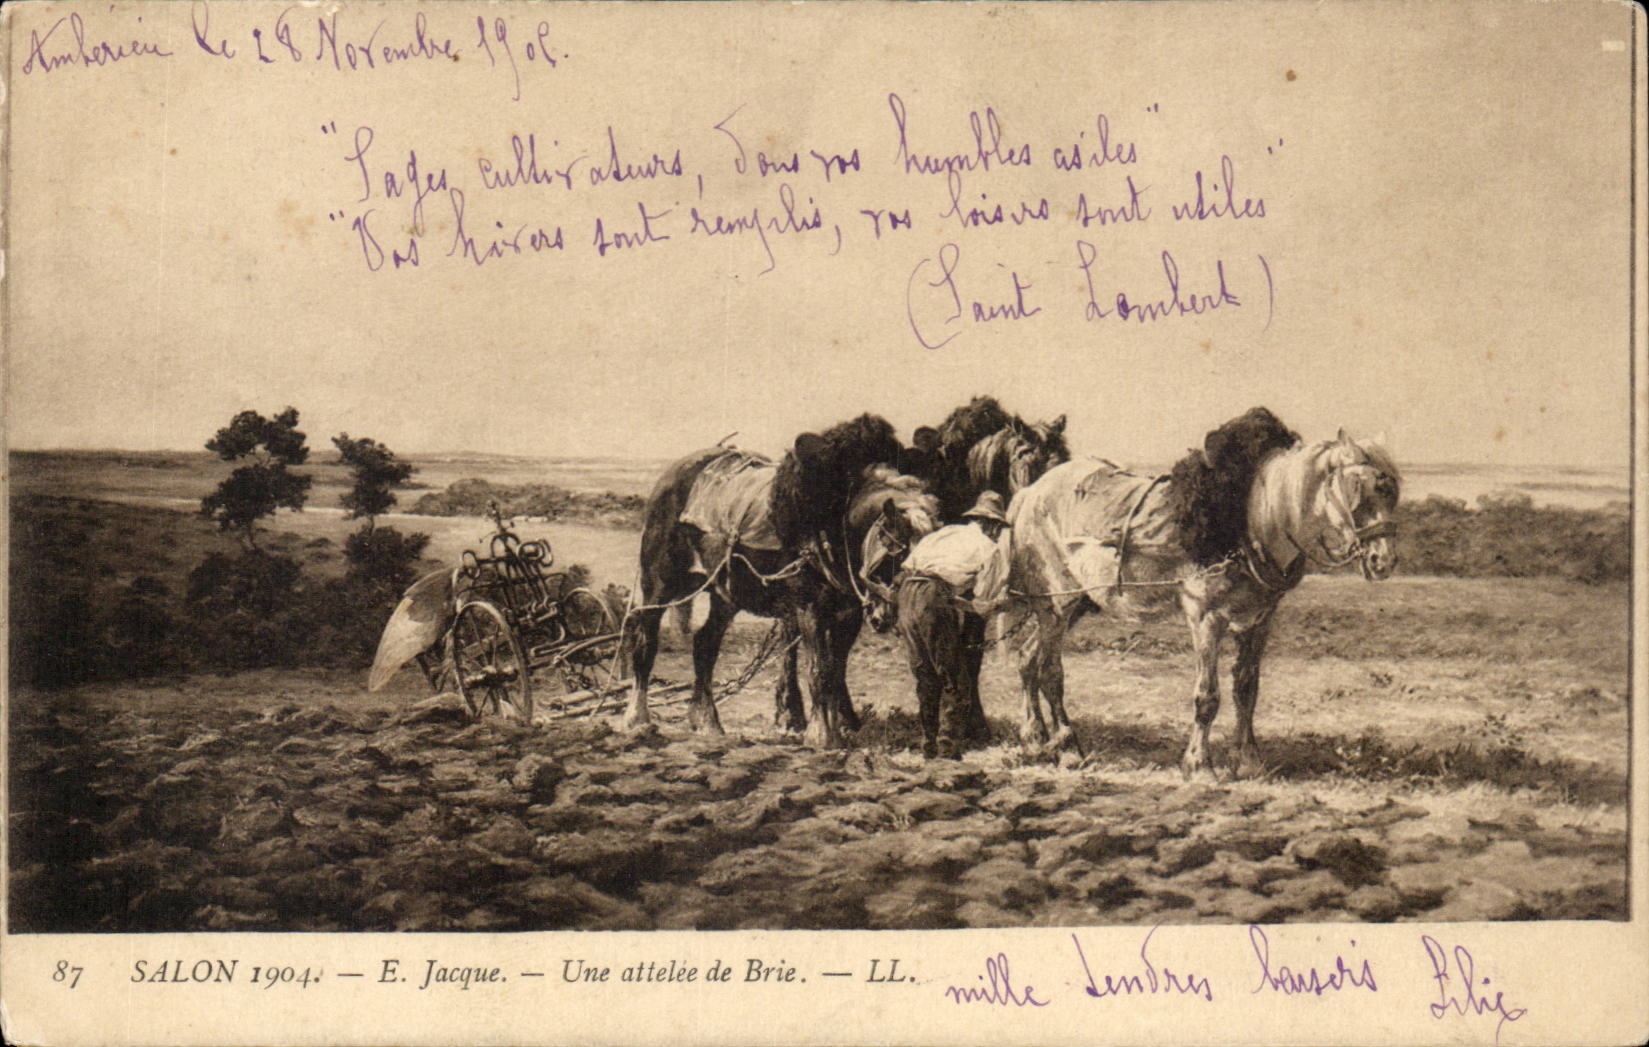 Ambérieu le 28 Novembre 1905.
"Sages cultivateurs, dans vos humbles asiles"
"Vos hivers sont remplis, vos loisirs sont utiles"
(Saint Lambert)
87 SALON 1904. — E. Jacque. — Une attelée de Brie. — LL.
mille tendres baisers Félix